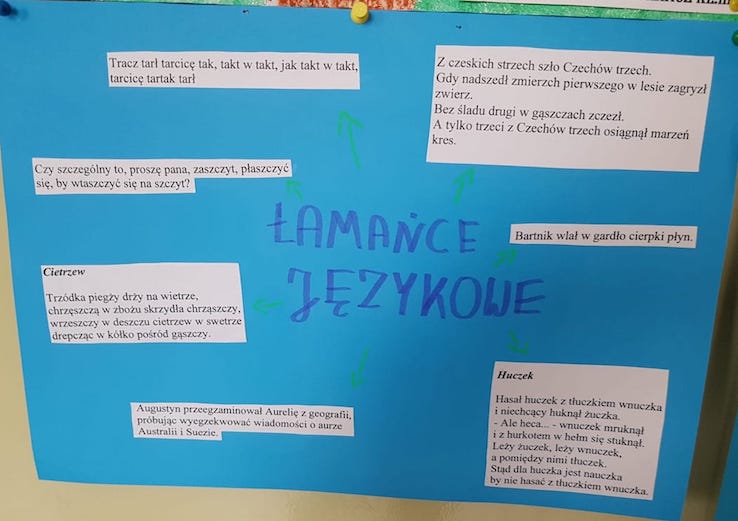 Tracz tarł tarcicę tak, takt w takt, jak takt w takt,
tarcicę tartak tarł
Z czeskich strzech szło Czechów trzech.
Gdy nadszedł zmierzch pierwszego w lesie zagryzł
zwierz.
Bez śladu drugi w gąszczach zczezł.
A tylko trzeci z Czechów trzech osiągnął marzeń
kres.
Czy szczególny to, proszę pana, zaszczyt, płaszczyć
się, by wtaszczyć się na szczyt?
ŁAMAŃCE
JĘZYKOWE
Bartnik wlał w gardło cierpki płyn.
Cietrzew
Trzódka piegży drży na wietrze,
chrzęszczą w zbożu skrzydła chrząszczy,
wrzeszczy w deszczu cietrzew w swetrze
drepcząc w kółko pośród gąszczy.
Augustyn przeegzaminował Aurelię z geografii,
próbując wyegzekwować wiadomości o aurze
Australii i Suezie.
Huczek
Hasał huczek z tłuczkiem wnuczka
i niechcący huknął żuczka.
- Ale heca... - wnuczek mruknął
i z hurkotem w hełm się stuknął.
Leży żuczek, leży wnuczek,
a pomiędzy nimi tłuczek.
Stąd dla huczka jest nauczka
by nie hasać z tłuczkiem wnuczka.